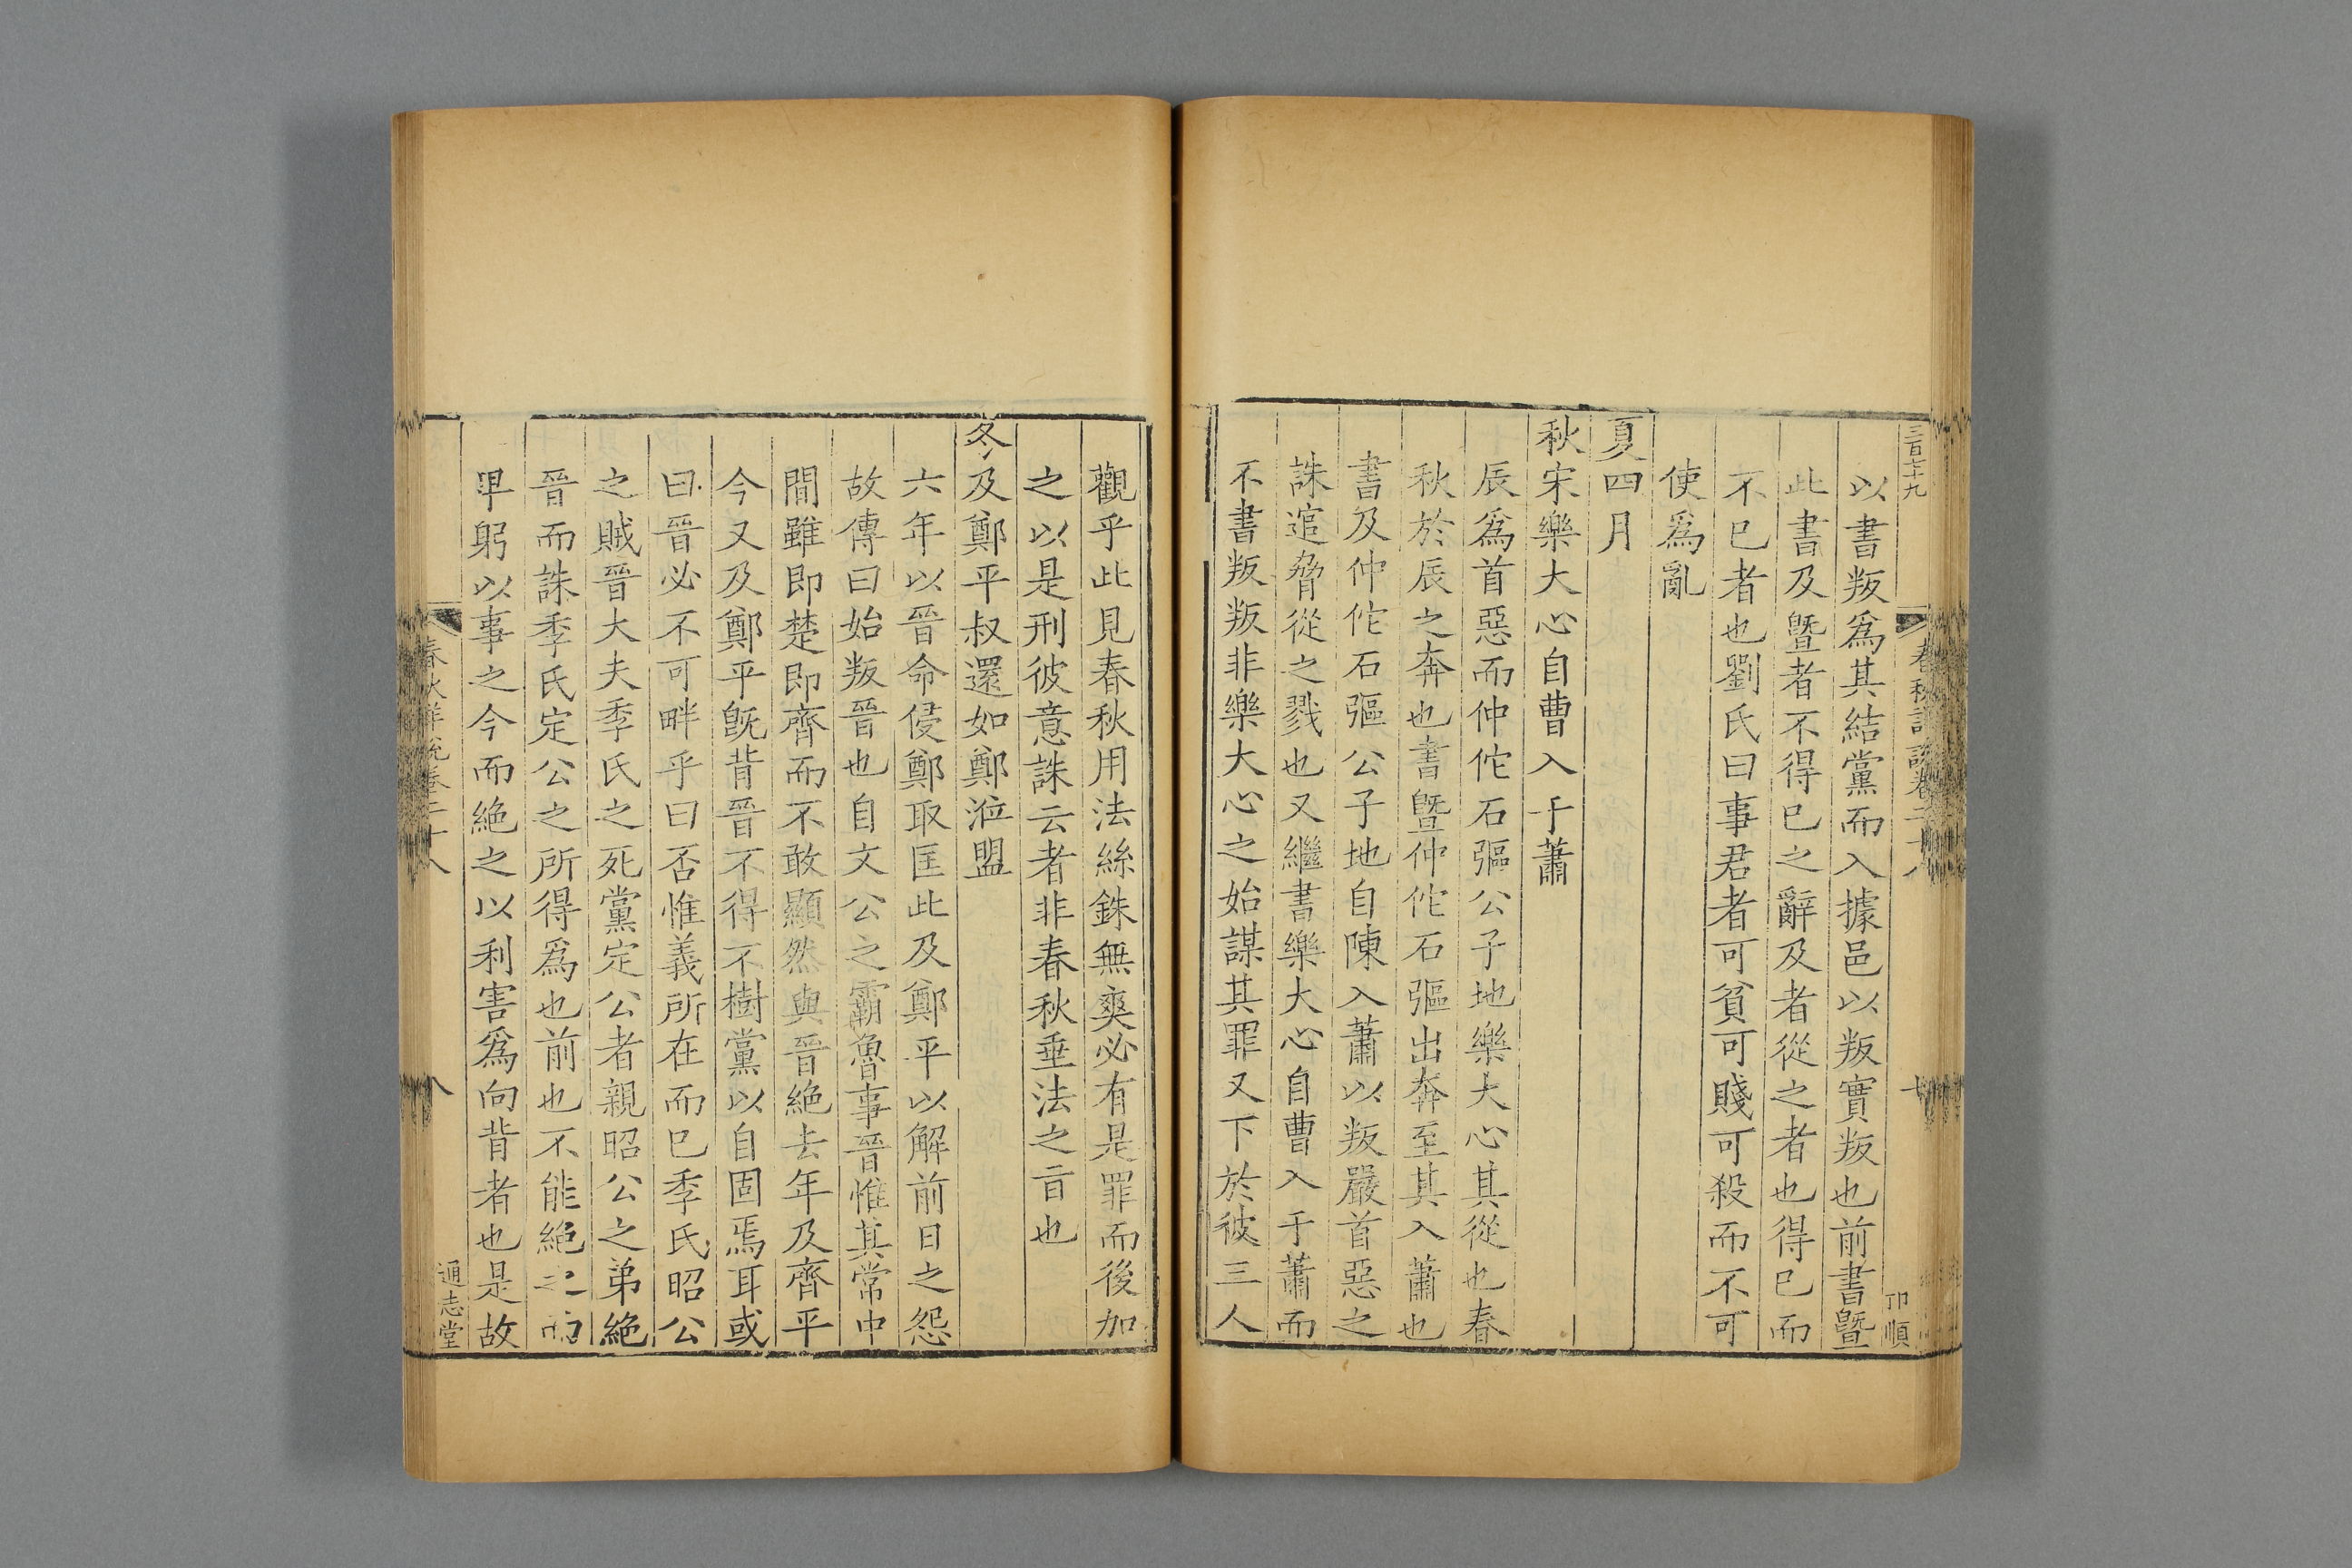 三百七十九
春秋詳說卷二十八
卬順
以書叛爲其結黨而入據邑以叛實叛也前書曁
此書及曁者不得已之辭及者從之者也得已而
不已者也劉氏曰事君者可貧可賤可殺而不可
使爲亂
夏四月
秋宋樂大心自曹入于蕭
辰爲首惡而仲佗石彄公子地樂大心其從也春
秋於辰之奔也書曁仲佗石彄出奔至其入蕭也
書及仲佗石彄公子地自陳入蕭以叛嚴首惡之
誅逭脅從之戮也又繼書樂大心自曹入于蕭而
不書叛叛非樂大心之始謀其罪又下於彼三人
觀乎此見春秋用法絲銖無爽必有是罪而後加
之以是刑彼意誅云者非春秋垂法之㫖也
冬及鄭平叔還如鄭涖盟
六年以晉命侵鄭取匡此及鄭平以解前日之怨
故傳曰始叛晉也自文公之霸魯事晉惟其常中
間雖即楚即齊而不敢顯然與晉絶去年及齊平
今又及鄭平旣背晉不得不樹黨以自固焉耳或
曰晉必不可畔乎曰否惟義所在而已季氏昭公
之賊晉大夫季氏之死黨定公者親昭公之弟絶
晉而誅季氏定公之所得爲也前也不能絶之而
卑躬以事之今而絶之以利害爲向背者也是故
春秋詳說卷二十八
八
通志堂